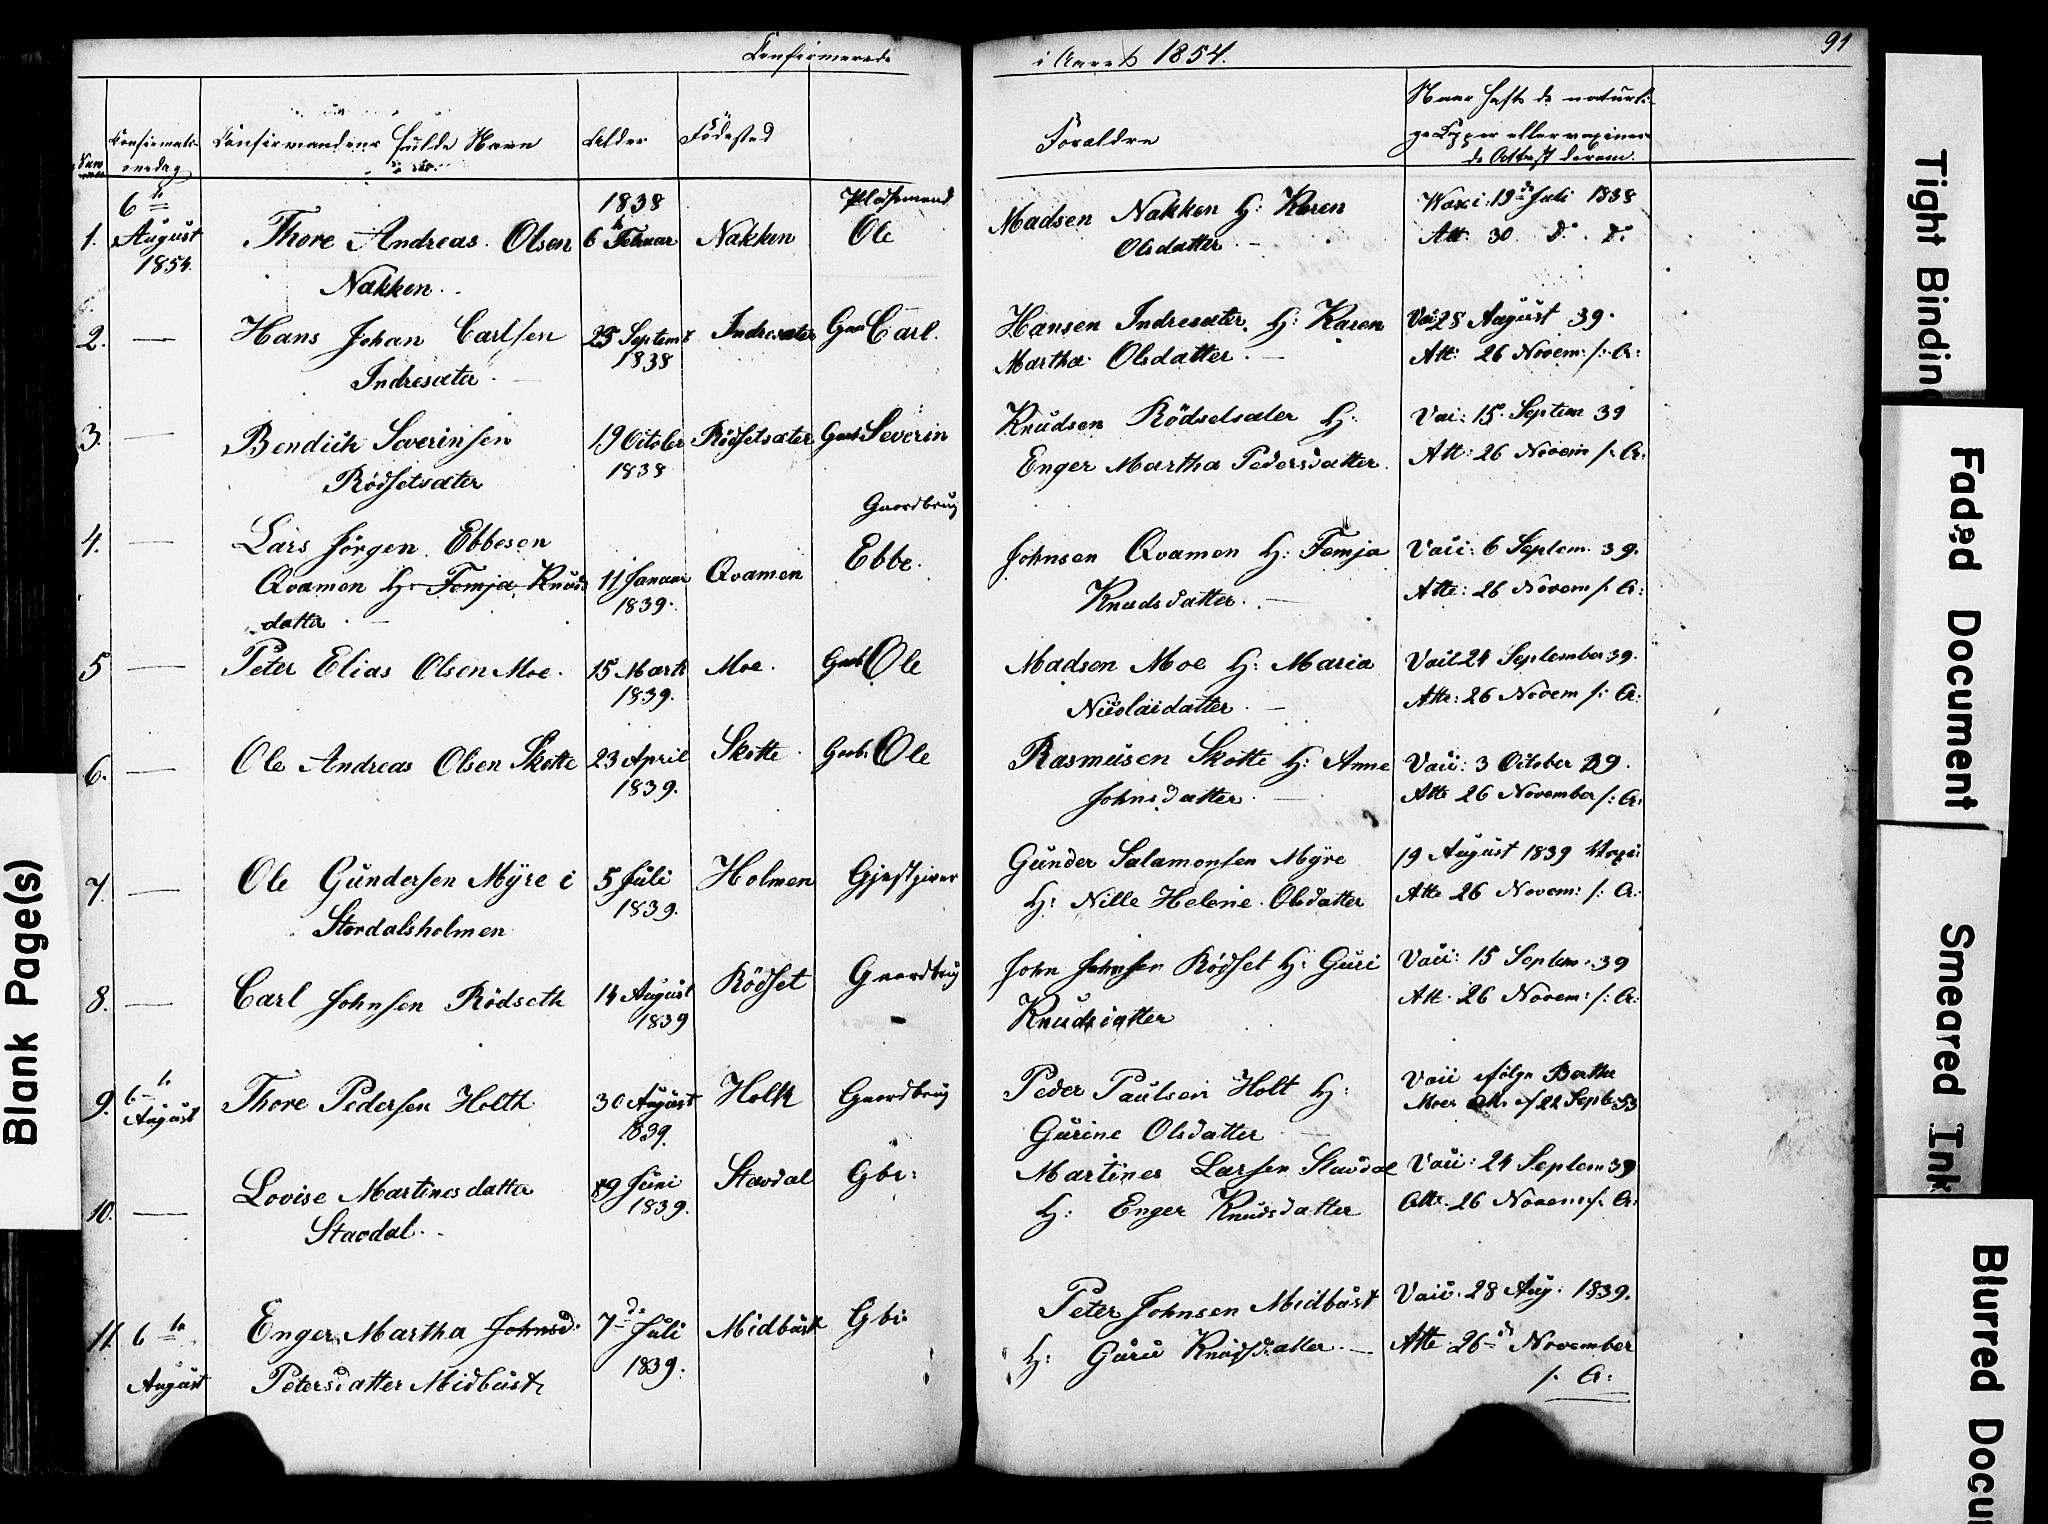 Confirmerede i Aaret 1854.
91
Confirmations Confirmandens fulde Navn Alder Födested Forældre Naar hafte de naturli
ge Kopper eller vaxinere
de Attest derom.
6te 1838 Pladsmand Madsen Nakken H: Karen Vaxi: 19de Juli 1838
1. August Thore Andreas Olsen 6 Februar Nakken Ole Olsdatter Att: 30. d: d:
1854. Nakken
2. — Hans Johan Carlsen 25 Septemb Indresæter Carl. Hansen Indresæter H: Karen 28 August 39.
Indresæter 1838 Martha Olsdatter Att: 26 Novem: s: A:
3. — Bendick Severinsen 19 October Rödsetsæter Gaab Severin Knudsen Rödsetsæter H: 15 Septem 39
Rödsetsæter 1838 Enger Martha Pedersdatter. Att: 26 Novem s: A:
Gaardbrug
4. — Lars Jörgen Ebbesen Ebbe. Johnsen Qvamen H: Femja Vacc: 6 Septem 39.
Qvamen H: Femja Knuds 11 Januar Qvamen Knudsdatter. Atte: 26 Novem s: A:
datter 1839.
5 — Peter Elias Olsen Moe. 15 Marti Moe. Gaab Ole Madsen Moe H: Maria 24 September 39.
1839. Nicolaidatter Atte: 26 Novem s: A:
6. — Ole Andreas Olsen Skotte 23 April Skotte Gaab: Ole Rasmusen Skotte H: Anne Vacc: 3 October 39.
1839. Johnsdatter. Atte 26 November s: A:
7. — Ole Gundersen Myre i 5 Juli Holmen Gjestgiver Gunder Salamonsen Myre 19 August 1839 Vaxi:
Stordalsholmen 1839. H: Nille Helene Olsdatter Atte 26 Novem: s: A:
8. — Carl Johnsen Rödseth 14 August Rödset Gaardbrug John Johnsen Rödset H: Guri Vacc: 15 Septem: 39
1839 Knudsdatter Att. 26 Novem: s: A:
9. 6te August Thore Pedersen Holth 30 August Holth Gaardbrug Peder Paulsen Holt H: Vacc ifölge Berthe
1839. Gurine Olsdatter Moes Att. af 22 Septb: 53
10. — Lovise Martinesdatter 19 Juni Stavdal Gbr: Martines Larsen Stavdal Vacc: 24 Septem 39
Stavdal. 1839. H: Enger Knudsdatter Atte. 26 Novem s: A:
11. 6te Enger Martha Johnsd: 7de Juli Midbust Gbr: Peter Johnsen Midbust Vacc. 28 Aug. 1839.
August Petersdatter Midbust 1839. H: Guru Knudsdatter. Atte 26de November
s: A:
Blank Page(s)
Tight Binding
Faded Document
Smeared Ink
Blurred Docu